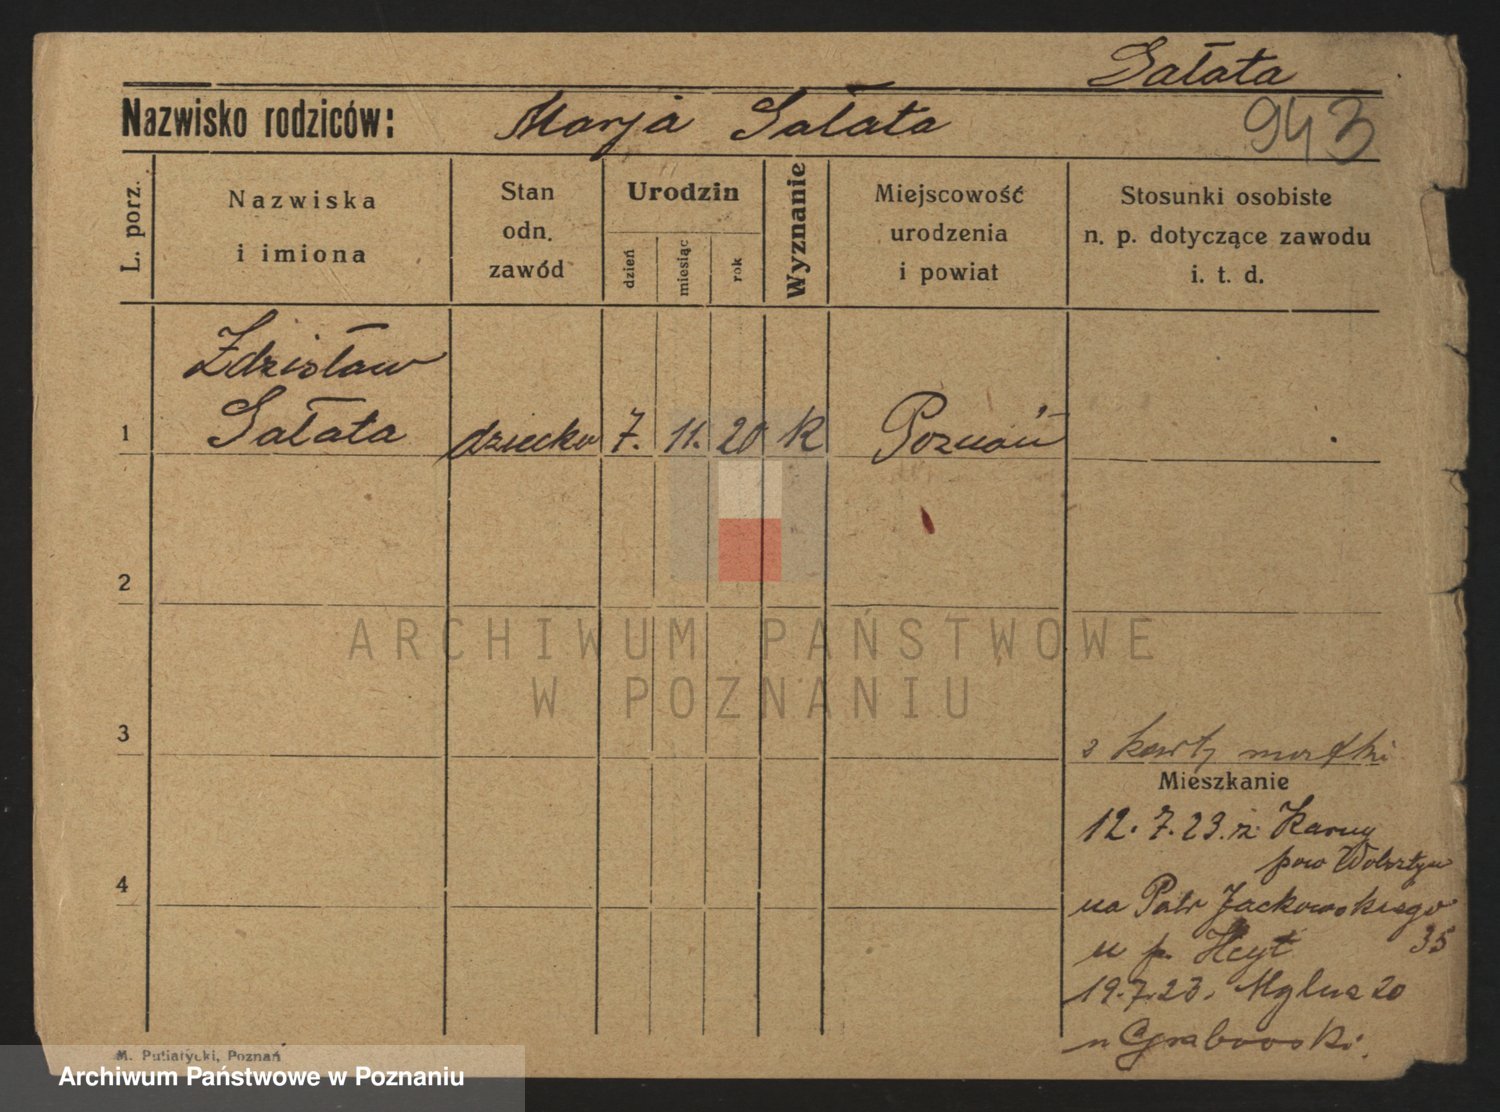 Sałata
Nazwisko rodziców: Marja Sałata
943
L. porz.
Nazwiska
i imiona
Stan
odn.
zawód
Urodzin
dzień
miesiąc
rok
Wyznanie
Miejscowość
urodzenia
i powiat
Stosunki osobiste
n. p. dotyczące zawodu
i. t. d.
Zdzisław
Sałata
1
dziecko 7. 11. 20 k Poznań
2
ARCHIWUM PAŃSTWOWE
W POZNANIU
3
z karty matki
Mieszkanie
12. 7. 23. z Karny
pow Wolsztyn
4
na Patr Jackowskiego
35
u p. Heyt
19. 7. 23. 20
u Grabowski.
M. Putiatycki, Poznań
Archiwum Państwowe w Poznaniu